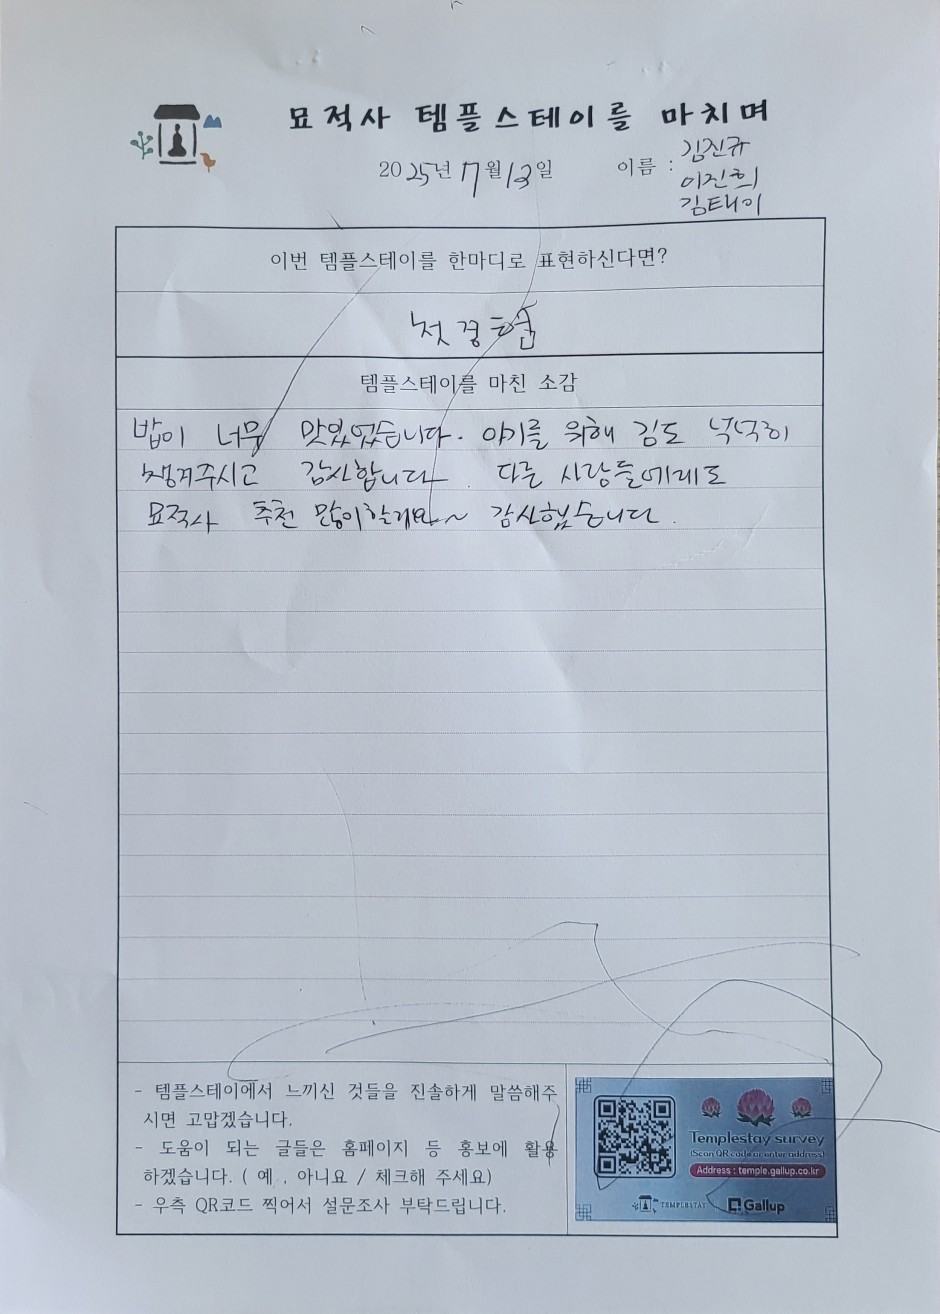 묘적사 템플스테이를 마치며
2025년 7월 13일 이름 : 김진규
이진희
김태이
이번 템플스테이를 한마디로 표현하신다면?
첫경험
템플스테이를 마친 소감
밥이 너무 맛있었습니다. 아기를 위해 김도 넉넉히
챙겨주시고 감사합니다. 다른 사람들에게도
묘적사 추천 많이할게요~ 감사했습니다.
- 템플스테이에서 느끼신 것들을 진솔하게 말씀해주
시면 고맙겠습니다.
- 도움이 되는 글들은 홈페이지 등 홍보에 활용
하겠습니다. ( 예 , 아니요 / 체크해 주세요)
- 우측 QR코드 찍어서 설문조사 부탁드립니다.
Templestay survey
(Scan QR code or enter address)
Address : temple.gallup.co.kr
TEMPLESTAY Gallup